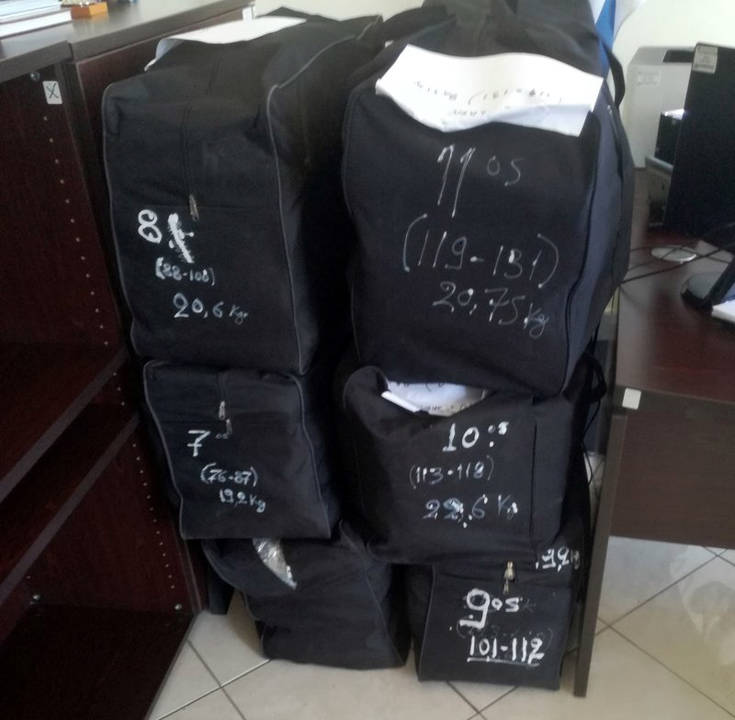 8
(88-100)
20,6 Kg
11 ος
(119-131)
20,75 Kg
7 ος
(76-87)
19,2 Kg
10 ος
(113-118)
22,6 Kg
9 ος
101-112